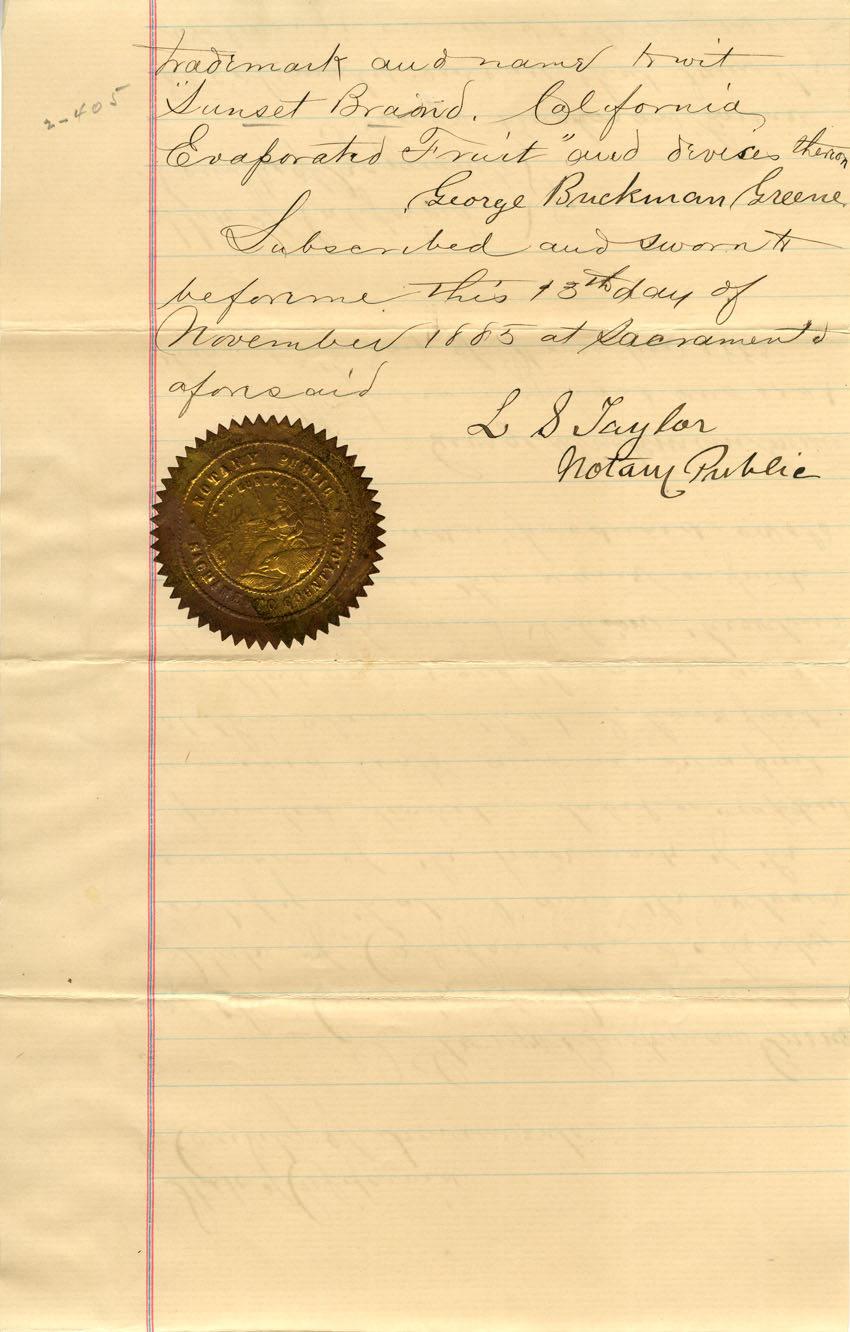 2-405
trademark and name towit
"Sunset Brand. California
Evaporated Fruit" and devices thereon
George Buckman Greene
Subscribed and sworn to
before me this 13th day of
November 1885 at Sacramento
aforesaid
L S Taylor
Notary Public
NOTARY PUBLIC
SACRAMENTO COUNTY, CAL.